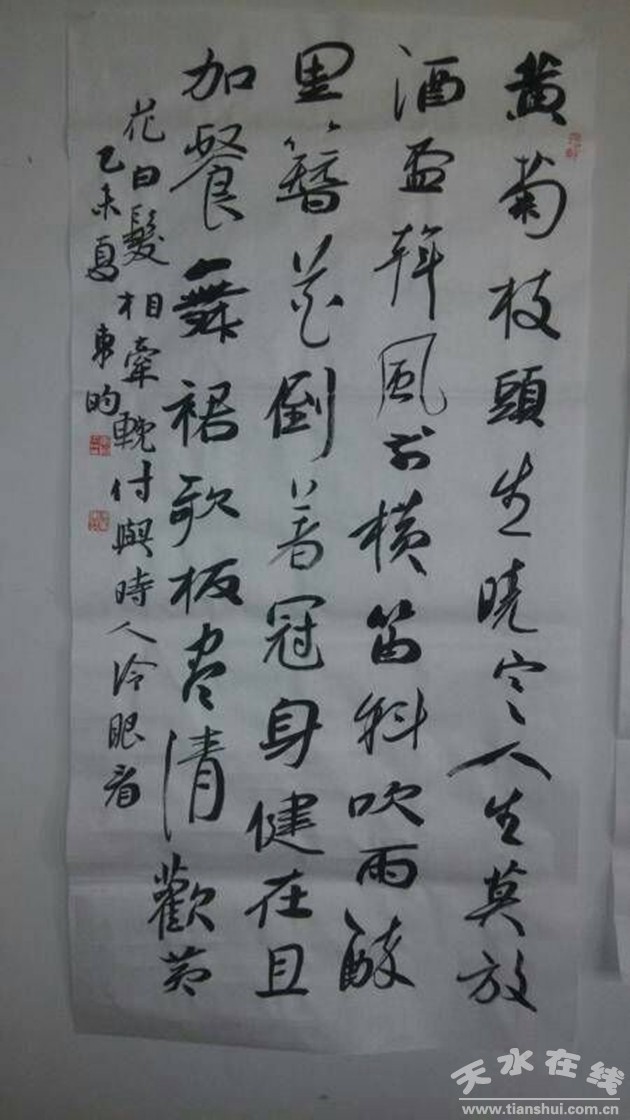 黄菊枝頭生曉寒人生莫放
酒盃幹風前横笛斜吹雨酔
里簪花倒著冠身健在且
加餐舞裙歌板尽清歡黄
花白髮相牽輓付與時人冷眼看
乙未夏東昀
天水在线
www.tianshui.com.cn